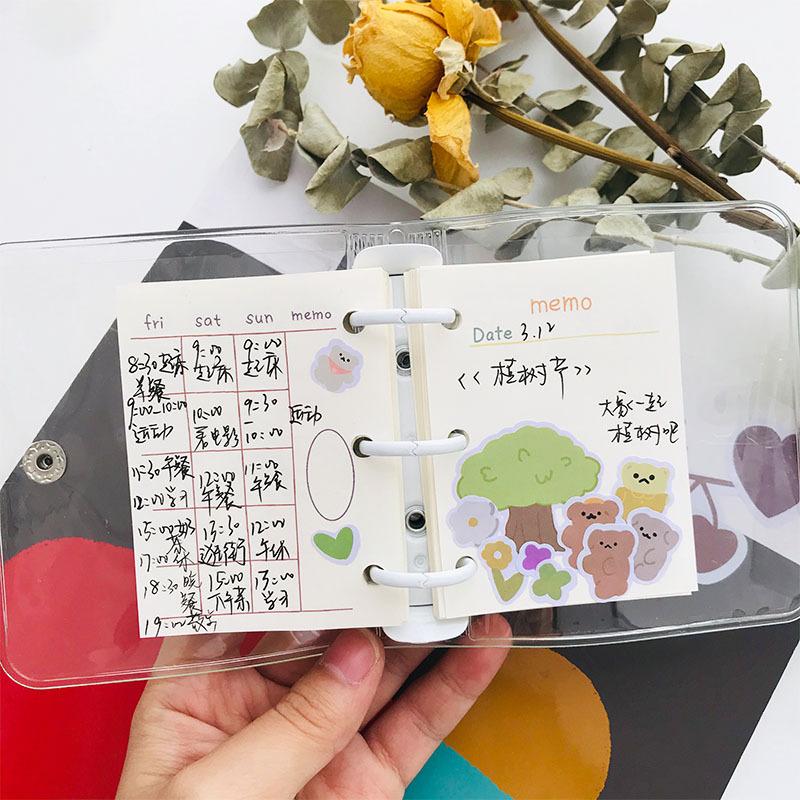 fri sat sun memo
8:30起床
早餐
9:00-10:00
运动
11:30午餐
12:00学习
15:00奶
茶
17:00
18:30晚
餐
19:00
9:00
起床
10:00
看电影
12:00
午餐
13:30
逛街
15:00
下午茶
9:00
起床
9:30
-
10:00
运动
11:00
午餐
12:00
午休
13:00
学习
memo
Date 3.12
<<植树节>>
大家一起
植树吧